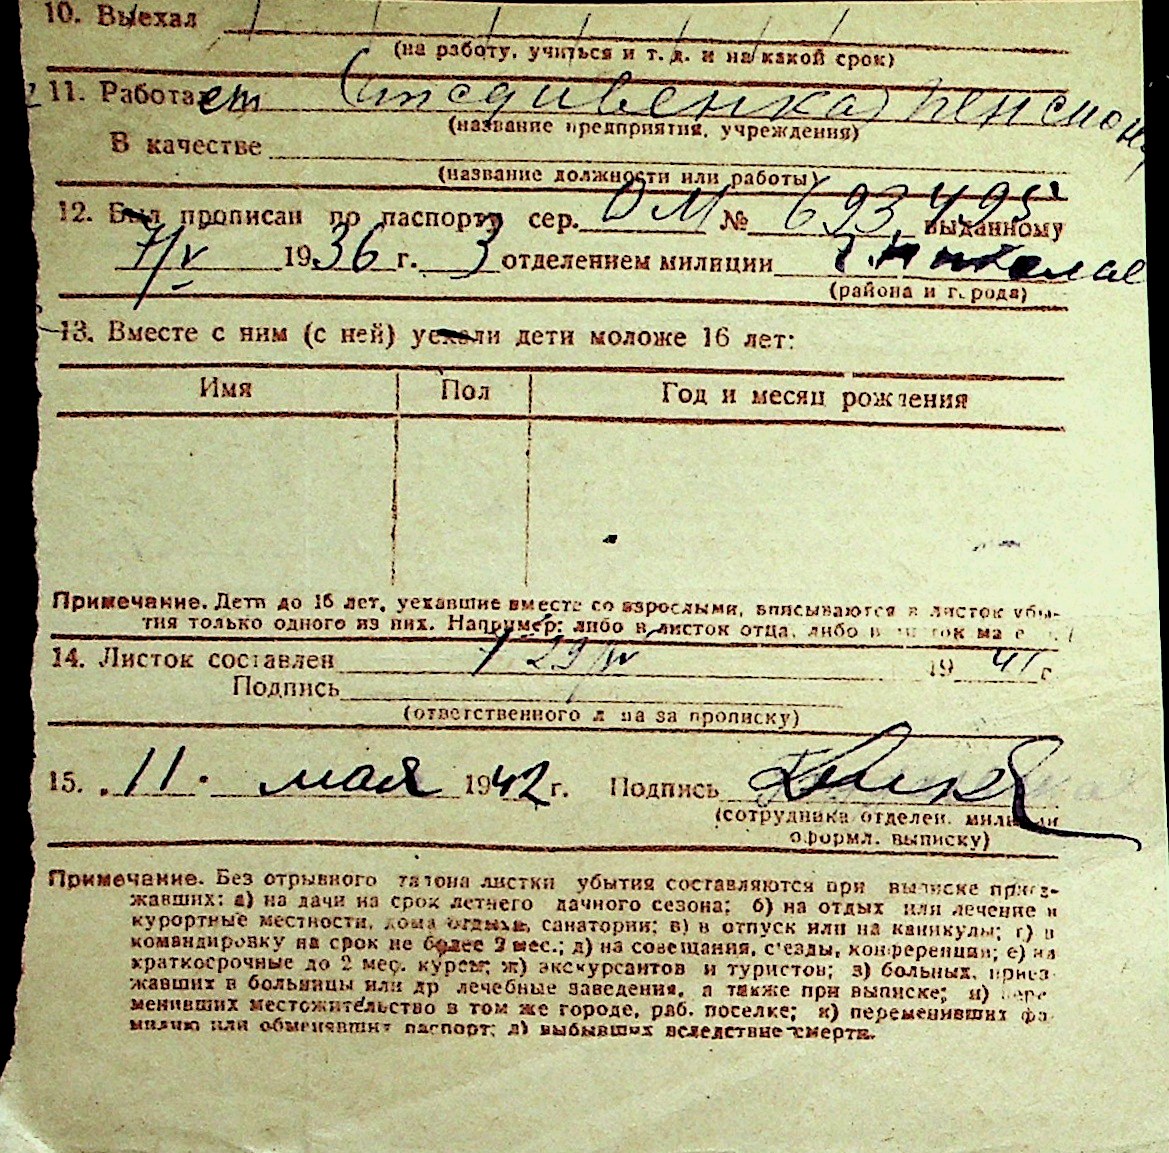 10. Выехал
(на работу, учиться и т. д. и на какой срок)
11. Работает иждивенка пенсион
(название предприятия, учреждения)
В качестве
(название должности или работы)
12. Был прописан по паспорту сер. ОМ № 693495 выданному
7/V 1936 г. 3 отделением милиции г. Николае
(района и города)
13. Вместе с ним (с ней) уехали дети моложе 16 лет:
Имя Пол Год и месяц рождения
Примечание. Дети до 16 лет, уехавшие вместе со взрослыми, вписываются в листок убы-
тия только одного из них. Например: либо в листок отца, либо в листок ма
14. Листок составлен 29/IV 1941 г
Подпись
(ответственного лица за прописку)
15. 11. мая 1942 г. Подпись
(сотрудника отделен. милиции
оформл. выписку)
Примечание. Без отрывного талона листки убытия составляются при выписке приез-
жавших: а) на дачи на срок летнего дачного сезона; б) на отдых или лечение в
курортные местности, дома отдыха, санатории; в) в отпуск или на каникулы; г) в
командировку на срок не более 2 мес.; д) на совещания, с'езды, конференции; е) на
краткосрочные до 2 мес. курсы; ж) экскурсантов и туристов; з) больных, приез-
жавших в больницы или др лечебные заведения, а также при выписке; и) пере
менивших местожительство в том же городе, раб. поселке; к) переменивших фа-
милию или обменявших паспорт; л) выбывших вследствие смерти.